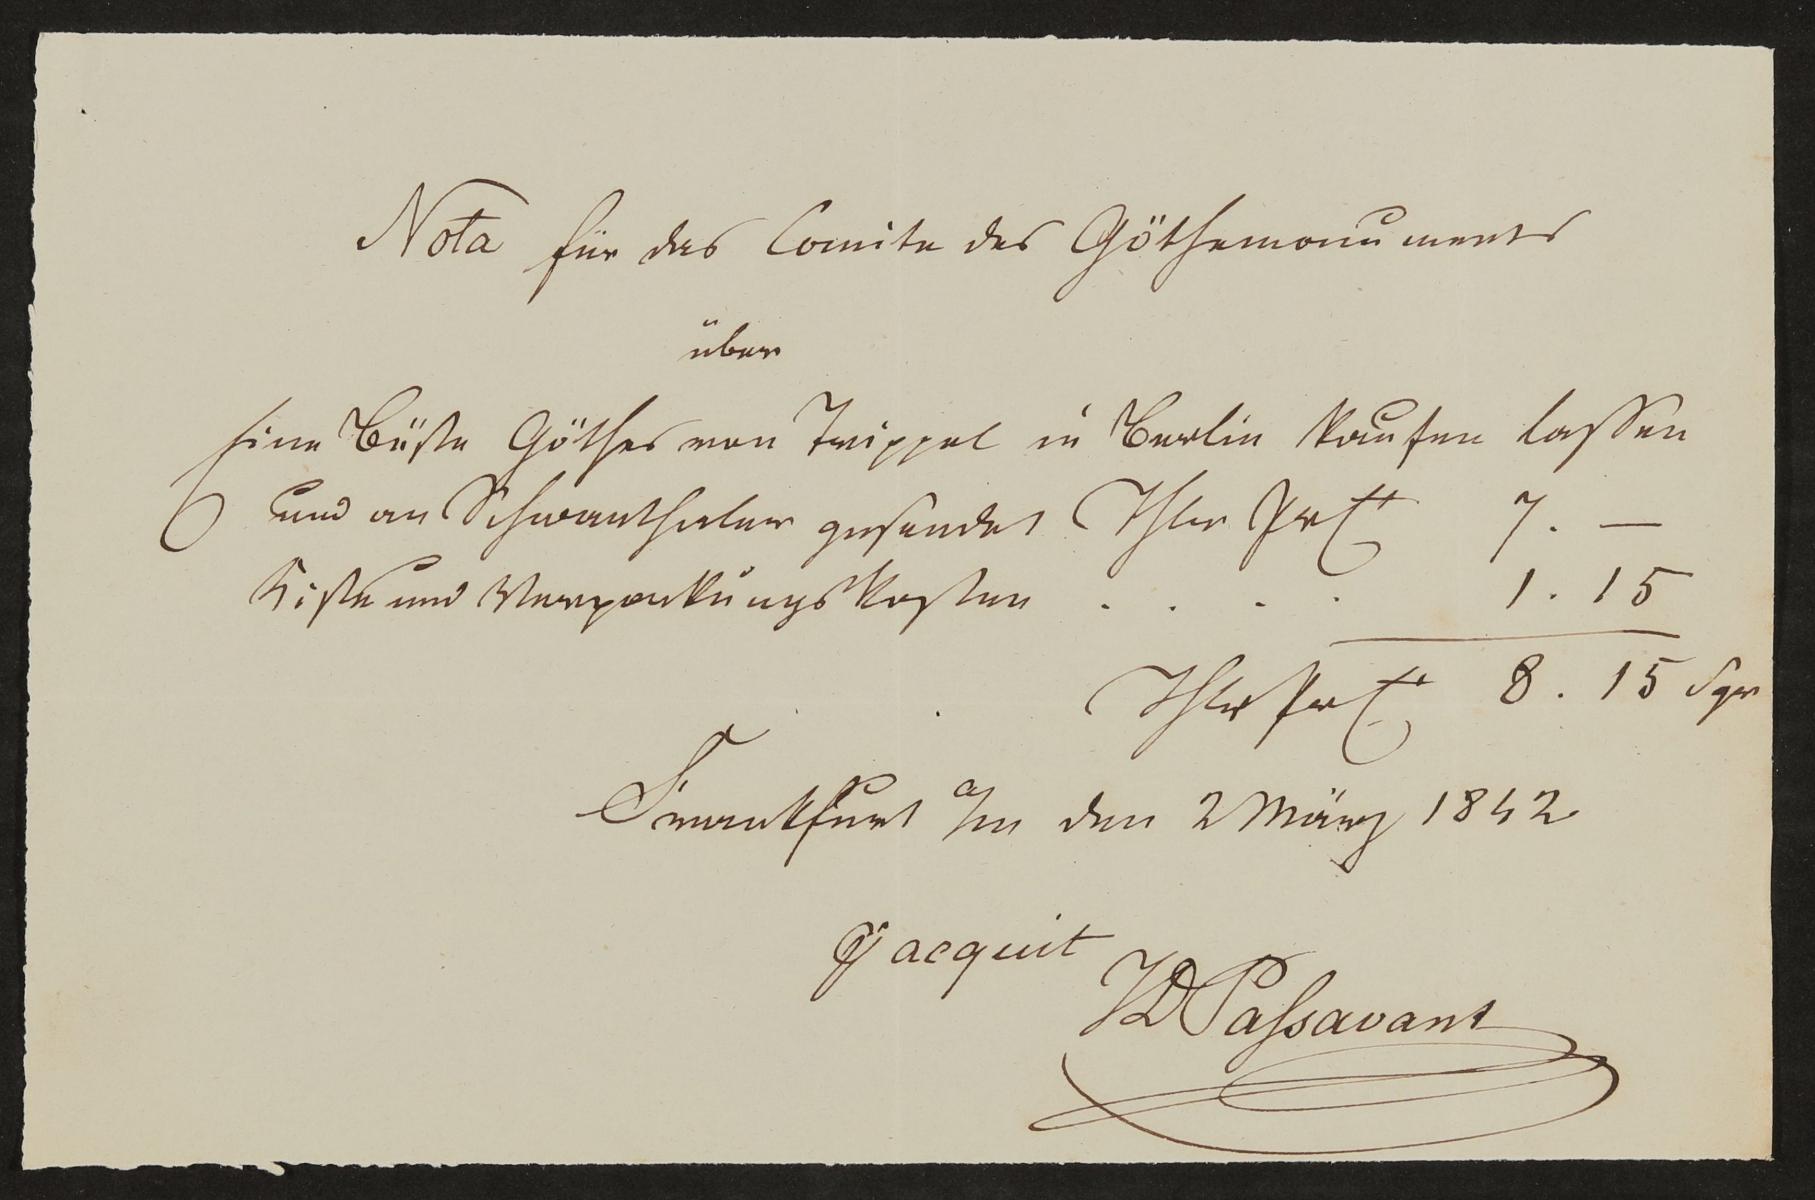 Nota für das Comite des Göthemonuments
über
Eine Büste Göthes von Trippel in Berlin kaufen lassen
und an Schwanthaler gesendet Thlr Pr Ct 7. —
Kiste und Verpackungskosten . . . . 1. 15
Thlr Pr Ct 8. 15 Sgr
Frankfurt a/m den 2 März 1842
acquit
JD Passavant